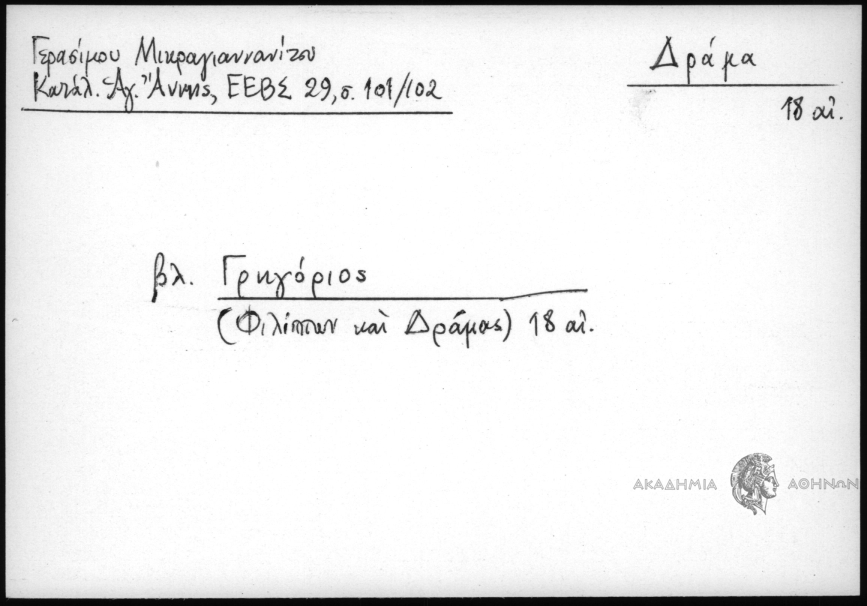 Γερασίμου Μικραγιαννανίτου
Κατάλ. Ἁγ. Ἄννης, ΕΕΒΣ 29, σ. 101/102
Δράμα
18 αἰ.
βλ. Γρηγόριος
(Φιλίππων καὶ Δράμας) 18 αἰ.
ΑΚΑΔΗΜΙΑ ΑΘΗΝΩΝ